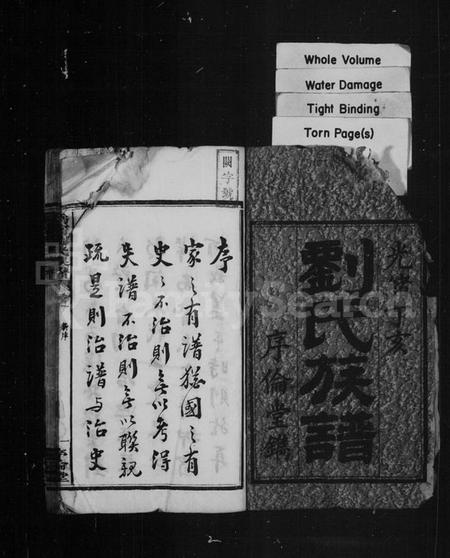 Whole Volume
Water Damage
Tight Binding
Torn Page(s)
劉氏族譜
序倫堂鐫
闕字號
序
家之有譜猶國之有
史史不治則無以考得
失譜不治則無以聯親
疏是則治譜與治史
FamilySearch
2